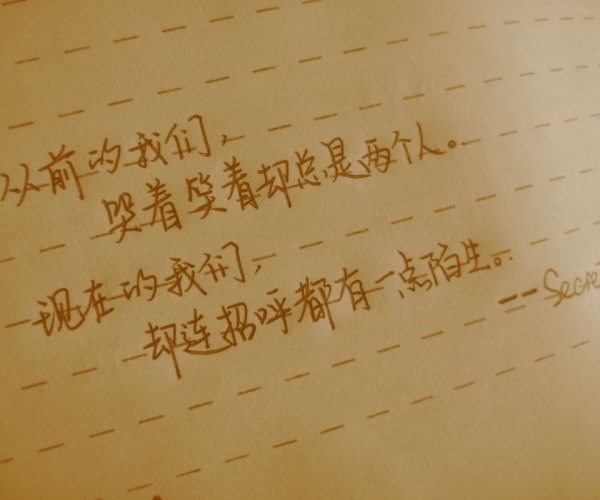 从前的我们，
哭着笑着却总是两个人。
现在的我们，
却连招呼都有一点陌生。
--Secre